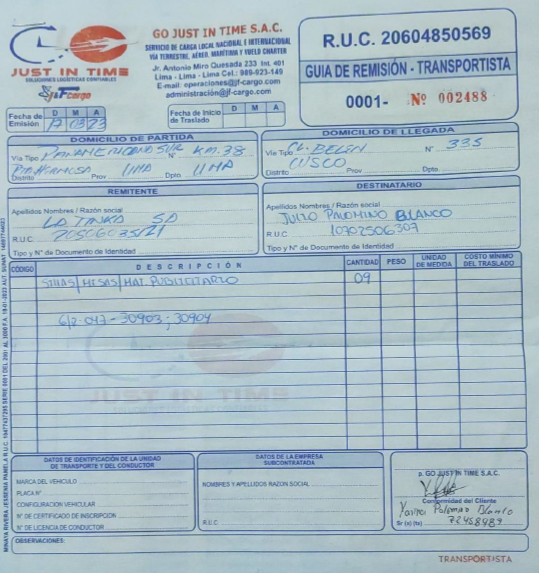 JUST IN TIME
SOLUCIONES LOGÍSTICAS CONFIABLES
J&F Cargo
GO JUST IN TIME S.A.C.
SERVICIO DE CARGA LOCAL NACIONAL E INTERNACIONAL
VÍA TERRESTRE, AÉREO, MARÍTIMA Y VUELO CHARTER
Jr. Antonio Miro Quesada 233 Int. 401
Lima - Lima - Lima Cel.: 989-923-149
E-mail: operaciones@jf-cargo.com
administración@jf-cargo.com
R.U.C. 20604850569
GUIA DE REMISIÓN - TRANSPORTISTA
0001- Nº 002488
Fecha de Emisión D M A
17 03 23
Fecha de Inicio de Traslado D M A
DOMICILIO DE PARTIDA
Vía Tipo PANAMERICANA SUR Nº KM. 38
Distrito Prov LIMA Dpto. LIMA
DOMICILIO DE LLEGADA
Vía Tipo CL. BELEN Nº 335
Distrito CUSCO Prov. Dpto.
REMITENTE
Apellidos Nombres / Razón social
LA TINKA SA
R.U.C 20506035121
Tipo y N° de Documento de Identidad
DESTINATARIO
Apellidos Nombres / Razón social
JULIO PALOMINO BLANCO
R.U.C. 10702506307
Tipo y N° de Documento de Identidad
CÓDIGO DESCRIPCIÓN CANTIDAD PESO UNIDAD DE MEDIDA COSTO MÍNIMO DEL TRASLADO
SILLAS/MESAS/MAT. PUBLICITARIO 09
612-047-30903; 30904
JUST IN TIME
DATOS DE IDENTIFICACIÓN DE LA UNIDAD DE TRANSPORTE Y DEL CONDUCTOR
MARCA DEL VEHICULO
PLACA Nº
CONFIGURACIÓN VEHICULAR
Nº DE CERTIFICADO DE INSCRIPCIÓN
Nº DE LICENCIA DE CONDUCTOR
DATOS DE LA EMPRESA SUBCONTRATADA
NOMBRES Y APELLIDOS RAZÓN SOCIAL
R.U.C
p. GO JUST IN TIME S.A.C.
Conformidad del Cliente
Palomino Blanco
Sr (a) (ta) 72458989
OBSERVACIONES:
TRANSPORTISTA